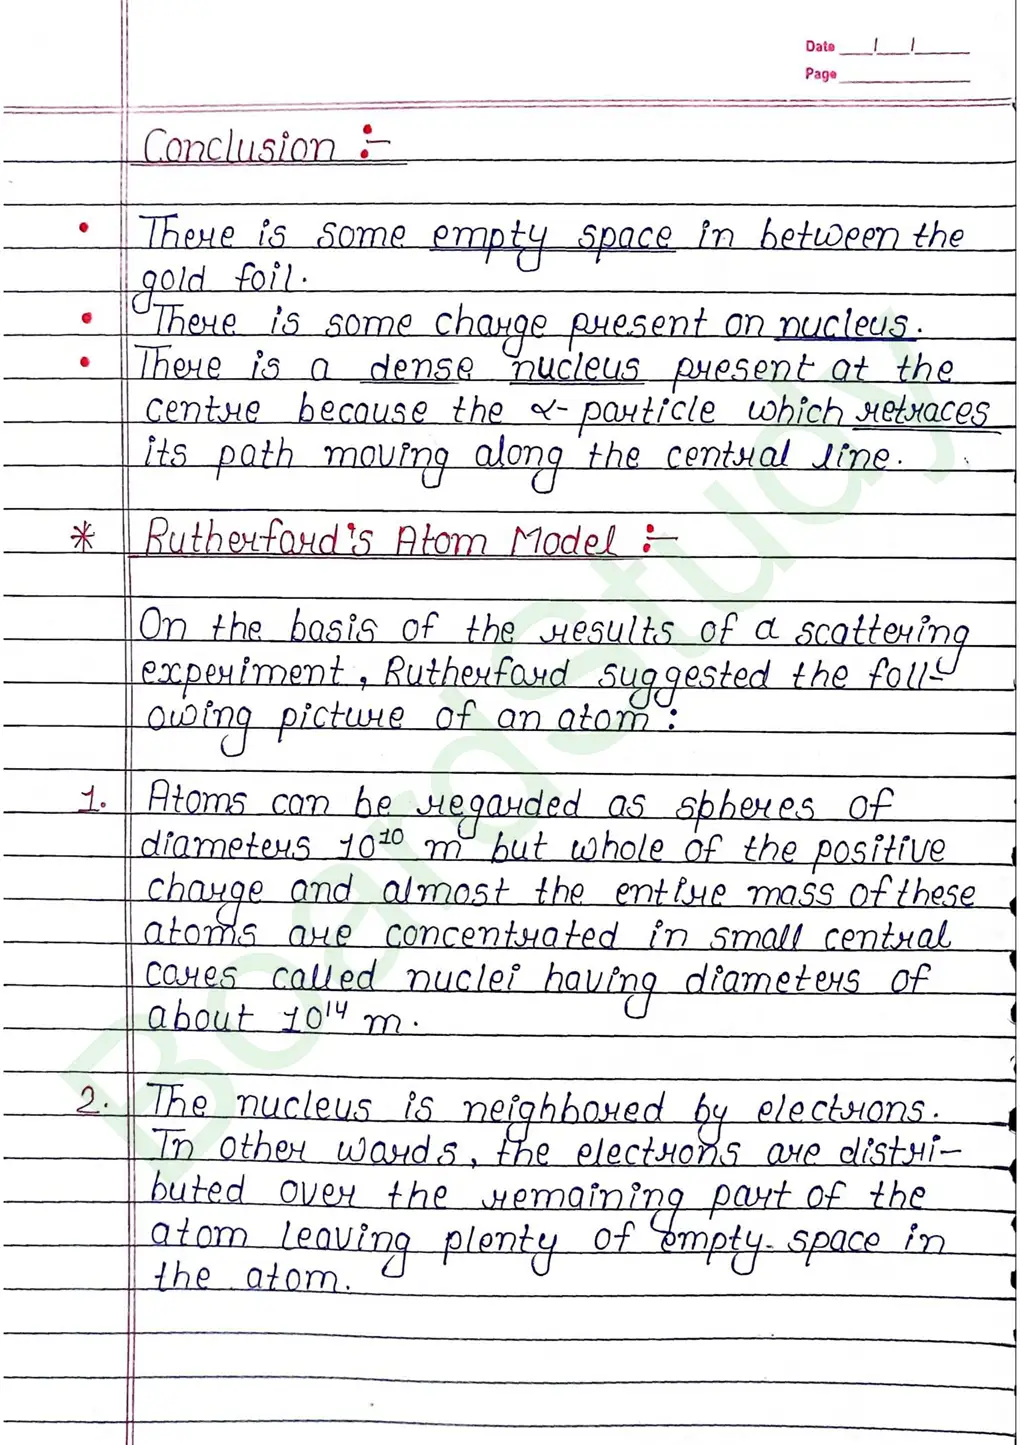 Date __/__/__
Page
Conclusion :-
• There is some empty space in between the
gold foil.
• There is some charge present on nucleus.
• There is a dense nucleus present at the
centre because the α-particle which retraces
its path moving along the central line.
* Rutherford's Atom Model :-
On the basis of the results of a scattering
experiment, Rutherford suggested the foll-
owing picture of an atom:
1. Atoms can be regarded as spheres of
diameters 10¹⁰ m but whole of the positive
charge and almost the entire mass of these
atoms are concentrated in small central
cores called nuclei having diameters of
about 10¹⁴ m.
2. The nucleus is neighbored by electrons.
In other words, the electrons are distri-
buted over the remaining part of the
atom leaving plenty of empty-space in
the atom.
BoardStudy